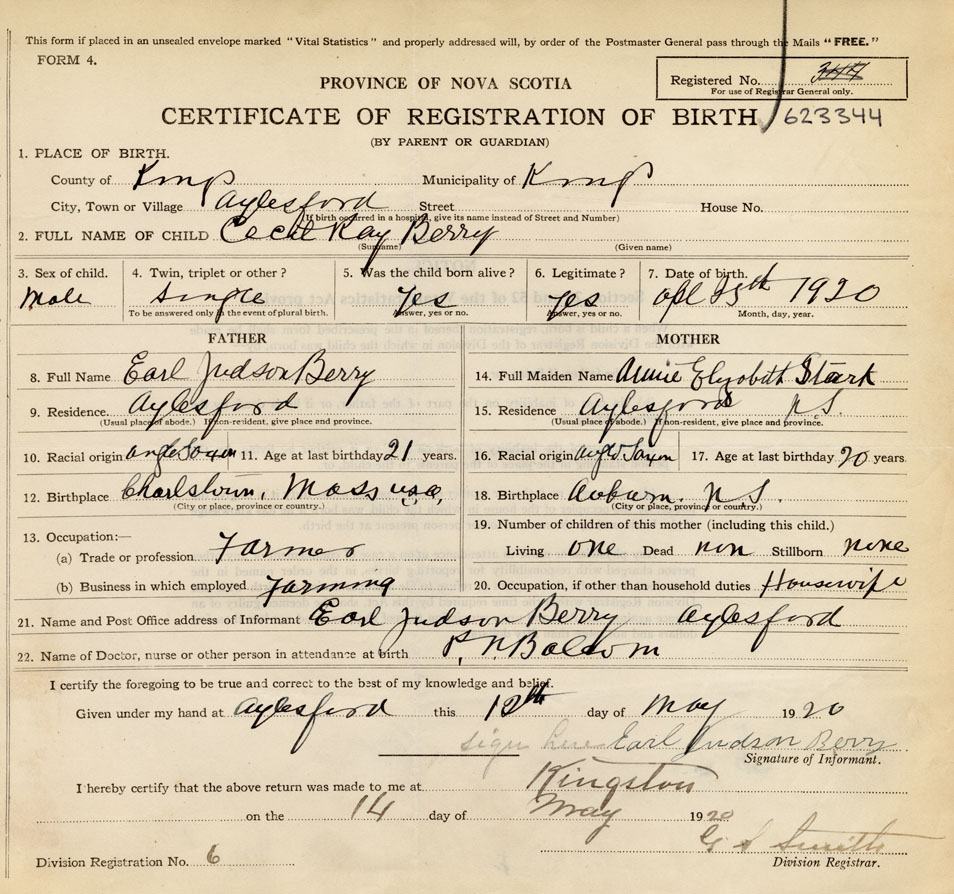 This form if placed in an unsealed envelope marked "Vital Statistics" and properly addressed will, by order of the Postmaster General pass through the Mails "FREE."
FORM 4.
Registered No.
For use of Registrar General only.
PROVINCE OF NOVA SCOTIA
CERTIFICATE OF REGISTRATION OF BIRTH 623344
(BY PARENT OR GUARDIAN)
1. PLACE OF BIRTH.
County of Kings Municipality of Kings
City, Town or Village Aylesford Street House No.
(If birth occurred in a hospital, give its name instead of Street and Number)
2. FULL NAME OF CHILD Cecil Ray Berry
(Surname) (Given name)
3. Sex of child. 4. Twin, triplet or other? 5. Was the child born alive? 6. Legitimate? 7. Date of birth.
Male Single Yes Yes 1920
To be answered only in the event of plural birth. Answer, yes or no. Answer, yes or no. Month, day, year.
FATHER MOTHER
8. Full Name Earl Judson Berry 14. Full Maiden Name Annie Elizabeth Stark
9. Residence. Aylesford 15. Residence Aylesford N.S.
(Usual place of abode.) If non-resident, give place and province. (Usual place of abode.) If non-resident, give place and province.
10. Racial origin Anglo Saxon 11. Age at last birthday 21 years. 16. Racial origin Anglo Saxon 17. Age at last birthday 20 years.
12. Birthplace Charlstown, Mass U.S.A. 18. Birthplace Auburn. N.S.
(City or place, province or country.) (City or place, province or country.)
13. Occupation:— 19. Number of children of this mother (including this child.)
(a) Trade or profession Farmer Living one Dead non Stillborn none
(b) Business in which employed Farming 20. Occupation, if other than household duties Housewife
21. Name and Post Office address of Informant Earl Judson Berry Aylesford
22. Name of Doctor, nurse or other person in attendance at birth P. N. Balcom
I certify the foregoing to be true and correct to the best of my knowledge and belief.
Given under my hand at Aylesford this day of May 1920
sign here Earl Judson Berry
Signature of Informant.
I hereby certify that the above return was made to me at Kingston
on the 14 day of May 1920
G S Smith
Division Registration No. 6 Division Registrar.